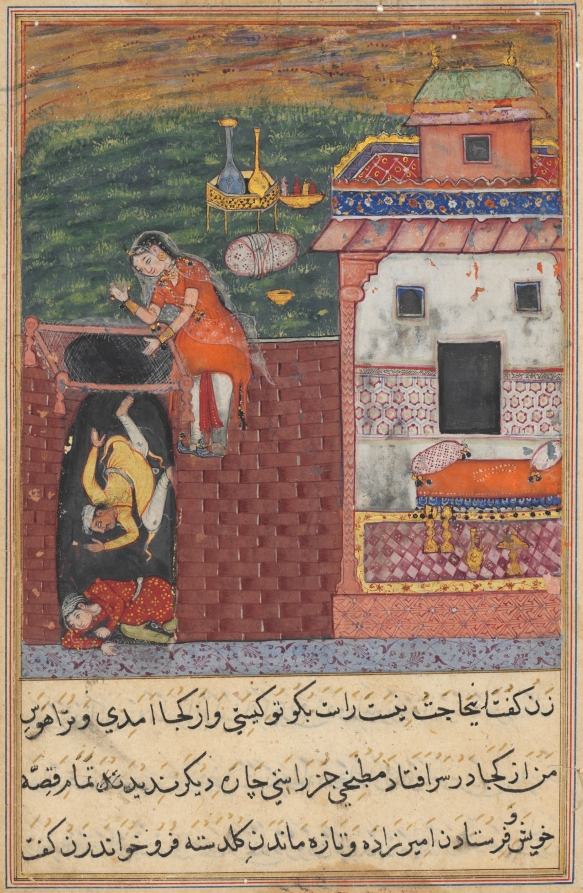 زن کفت اینجا جت نیست راست بکو تو کیستی و از کجا امدی و ترا هوس
من از کجا در سر افتاد مطبخی جز راستی چاره دیکر ندید تمام قصّه
خویش و فرستادن امیرزاده و تازه ماندن کلدسته فرو خواند زن کفت